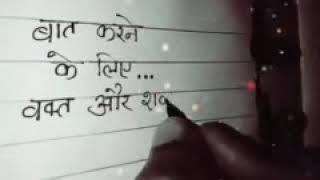 बात करने
के लिए...
वक्त और शब